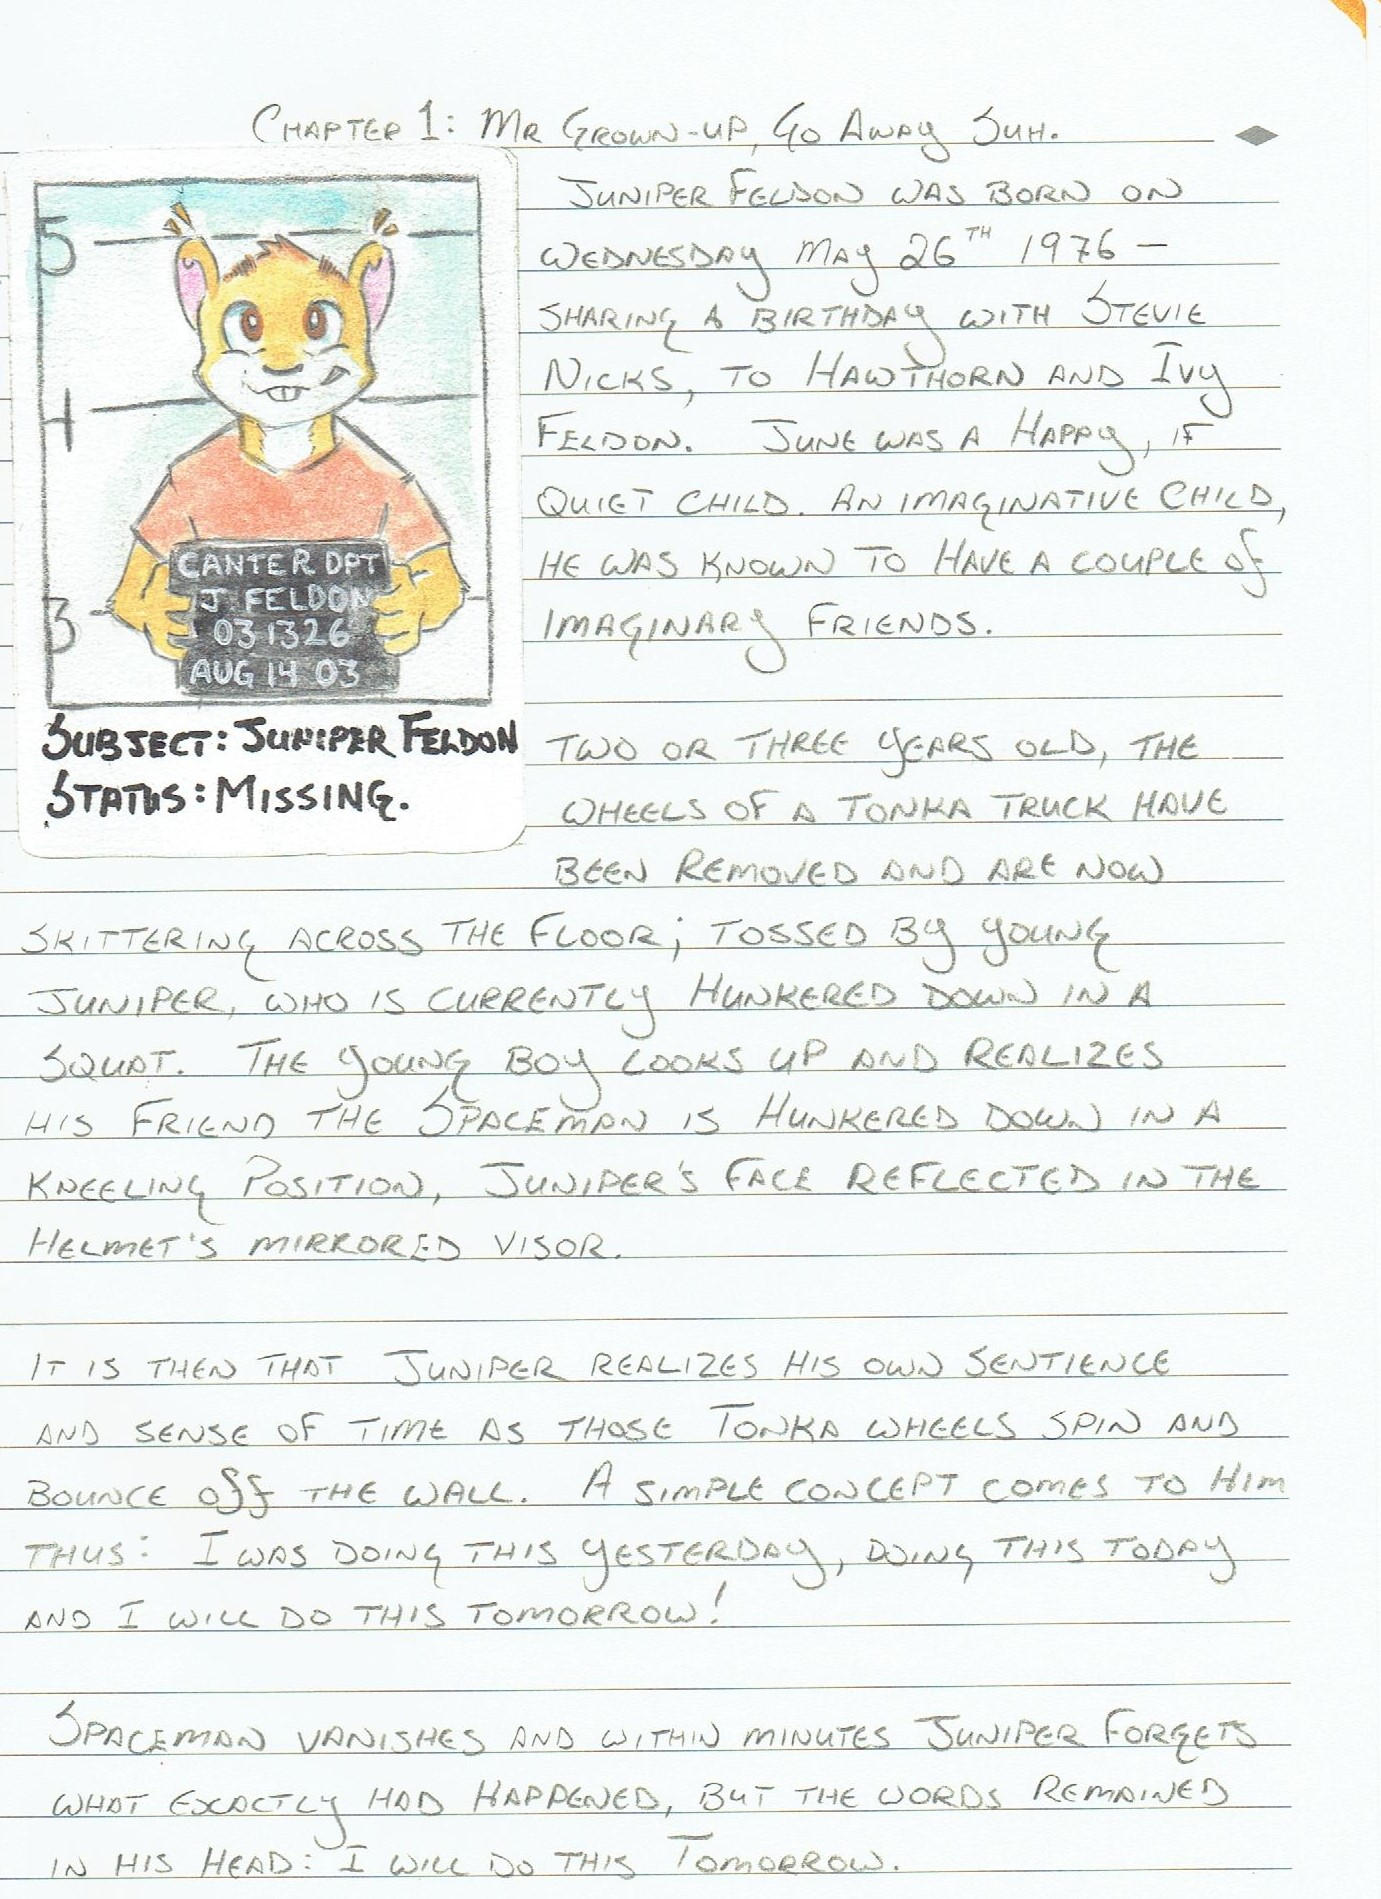 Chapter 1: Mr Grown-up, Go Away Suh.
Juniper Feldon was born on
Wednesday May 26TH 1976 –
sharing a birthday with Stevie
Nicks, to Hawthorn and Ivy
Feldon. June was a Happy, if
quiet child. An imaginative child,
he was known to have a couple of
imaginary friends.
5
4
3
CANTER DPT
J FELDON
031326
AUG 14 03
Subject: Juniper Feldon
Status: Missing.
Two or three years old, the
wheels of a Tonka truck have
been removed and are now
skittering across the floor; tossed by young
Juniper, who is currently hunkered down in a
squat. The young boy looks up and realizes
his friend the Spaceman is hunkered down in a
kneeling position, Juniper's face reflected in the
helmet's mirrored visor.
It is then that Juniper realizes his own sentience
and sense of time as those Tonka wheels spin and
bounce off the wall. A simple concept comes to him
thus: I was doing this yesterday, doing this today
and I will do this tomorrow!
Spaceman vanishes and within minutes Juniper forgets
what exactly had happened, but the words remained
in his head: I will do this Tomorrow.